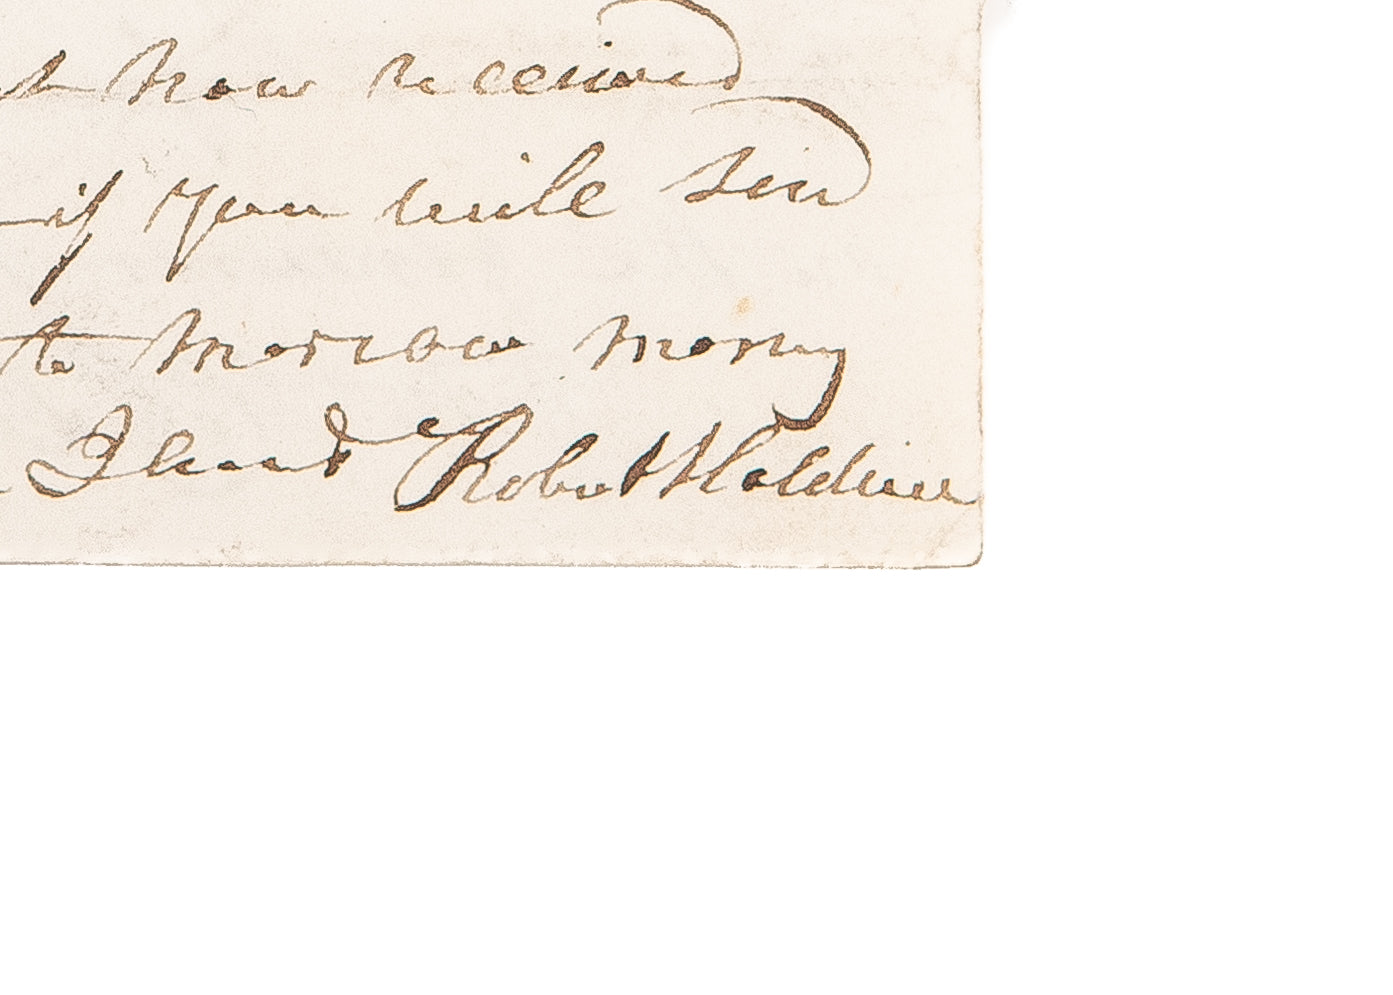 now received
if you will send
to morrow morning
Robert Holden